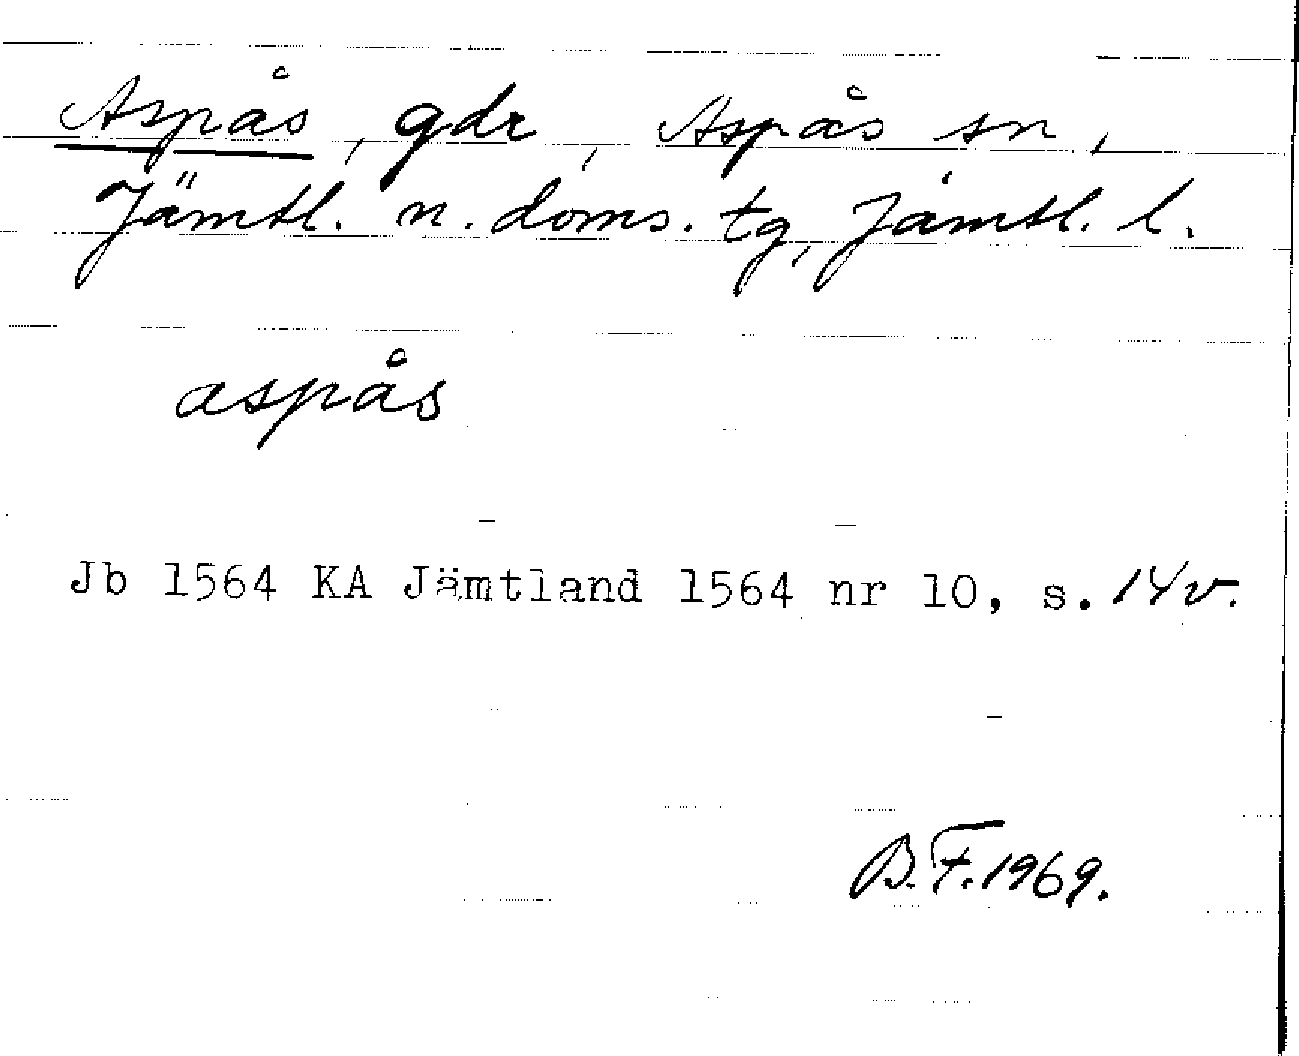 Aspås, gdr, Aspås sn,
Jämtl. n. doms. tg, Jämtl. l.
aspås
Jb 1564 KA Jämtland 1564 nr 10, s. 14v.
B.F. 1969.